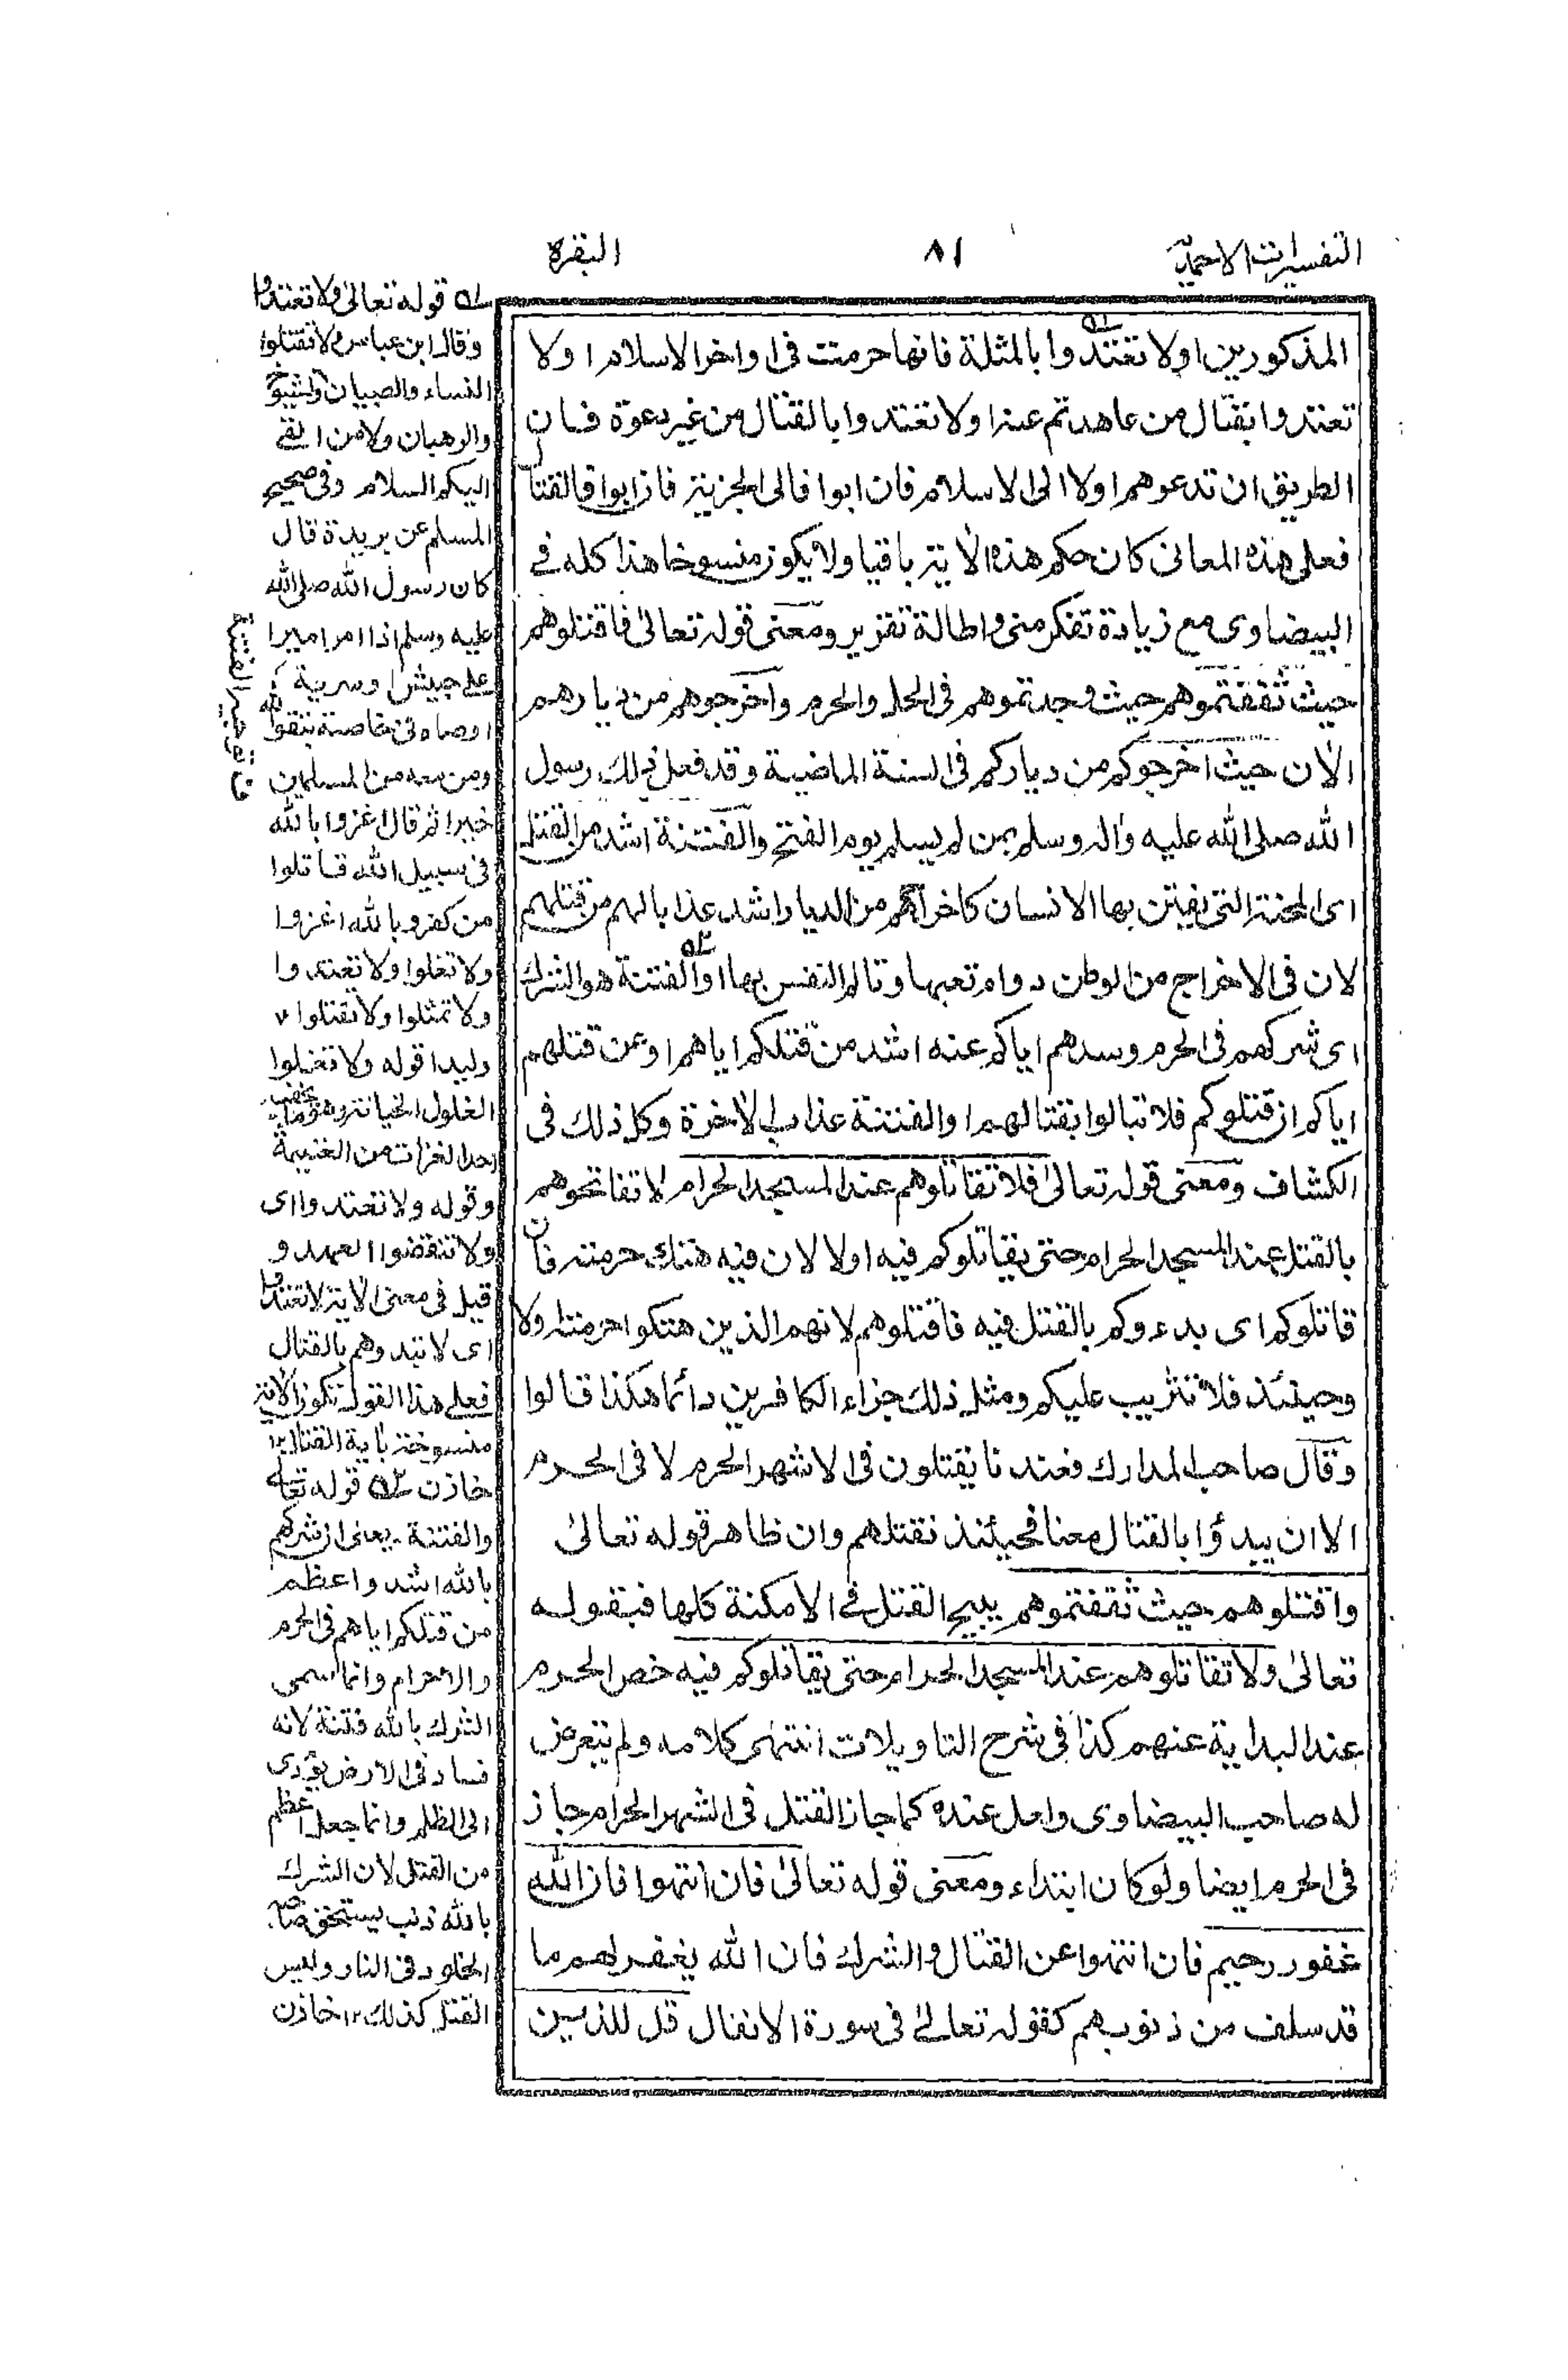 التفسيرات الاحمدية
٨١
البقرة
المذكورين او لا تعتدوا بالمثلة فانها حرمت فى اواخر الاسلام او لا
تعتدوا بقتال من عاهدتم عنه او لا تعتدوا بالقتال من غير دعوة فان
الطريق ان تدعوهم اولا الى الاسلام فان ابوا فالى الجزية فان ابوا فالقتال
فعلى هذه المعانى كان حكم هذه الآية باقيا ولا يكون منسوخا هذا كله فى
البيضاوى مع زيادة تفكر منى واطالة تقرير ومعنى قوله تعالى فاقتلوهم
حيث ثقفتموهم حيث وجدتموهم فى الحل والحرم واخرجوهم من ديارهم
الآن حيث اخرجوكم من دياركم فى السنة الماضية وقد فعل ذلك رسول
الله صلى الله عليه وآله وسلم بمن لم يسلم يوم الفتح والفتنة اشد من القتل
اى المحنة التى يفتتن بها الانسان كاخراجكم من الديار اشد عذابا لهم من قتلهم
لان فى الاخراج من الوطن دوام تعبها وتالم النفس بها او الفتنة هو الشرك
اى شركهم فى الحرم وسدهم اياكم عنه اشد من قتلكم اياهم او عن قتلهم
اياكم ان قتلوكم فلا تبالوا بقتالهم او الفتنة عذاب الآخرة وكل ذلك فى
الكشاف ومعنى قوله تعالى فلا تقاتلوهم عند المسجد الحرام لا تفاتحوهم
بالقتل عند المسجد الحرام حتى يقاتلوكم فيه اولا لان فيه هتك حرمته فان
قاتلوكم اى بدءوكم بالقتل فيه فاقتلوهم لانهم الذين هتكوا حرمته اولا
وحينئذ فلا تثريب عليكم ومثل ذلك جزاء الكافرين دائما هكذا قالوا
وقال صاحب المدارك فعندنا يقتلون فى الاشهر الحرم لا فى الحرم
الا ان يبدؤا بالقتال معنا فحينئذ نقتلهم وان ظاهر قوله تعالى
واقتلوهم حيث ثقفتموهم يبيح القتل فى الامكنة كلها فبقوله
تعالى ولا تقاتلوهم عند المسجد الحرام حتى يقاتلوكم فيه خص الحرم
عند البداية عنهم كذا فى شرح التاويلات انتهى كلامه ولم يتعرض
له صاحب البيضاوى ولعل عنده كما جاز القتل فى الشهر الحرام جاز
فى الحرم ايضا ولو كان ابتداء ومعنى قوله تعالى فان انتهوا فان الله
غفور رحيم فان انتهوا عن القتال والشرك فان الله يغفر لهم ما
قد سلف من ذنوبهم كقوله تعالى فى سورة الانفال قل للذين
له قوله تعالى ولا تعتدوا
وقال ابن عباس ولا تقتلوا
النساء والصبيان والشيوخ
والرهبان ولا من القى
اليكم السلام وفى صحيح
المسلم عن بريدة قال
كان رسول الله صلى الله
عليه وسلم اذا امر اميرا
على جيش او سرية
اوصاه فى خاصته بتقوى الله
ومن معه من المسلمين
خيرا ثم قال اغزوا بالله
فى سبيل الله قاتلوا
من كفر بالله اغزوا
ولا تغلوا ولا تعتدوا
ولا تمثلوا ولا تقتلوا
وليدا قوله ولا تغلوا
الغلول الخيانة وهو ما يخفيه
احد الغزات من الغنيمة
وقوله ولا تعتدوا اى
ولا تنقضوا العهد و
قيل فى معنى الآية لا تعتدوا
اى لا تبدوهم بالقتال
فعلى هذا القول تكون الآية
منسوخة بآية القتال ١٢
خازن ٢ه قوله تعالى
والفتنة يعنى ان شركهم
بالله اشد واعظم
من قتلكم اياهم فى الحرم
والاحرام وانما سمى
الشرك بالله فتنة لانه
فساد فى الارض يؤدى
الى الظلم وانما جعل اعظم
من القتل لان الشرك
بالله ذنب يستحق صاحبه
الخلود فى النار وليس
القتل كذلك ١٢ خازن
الفتنة